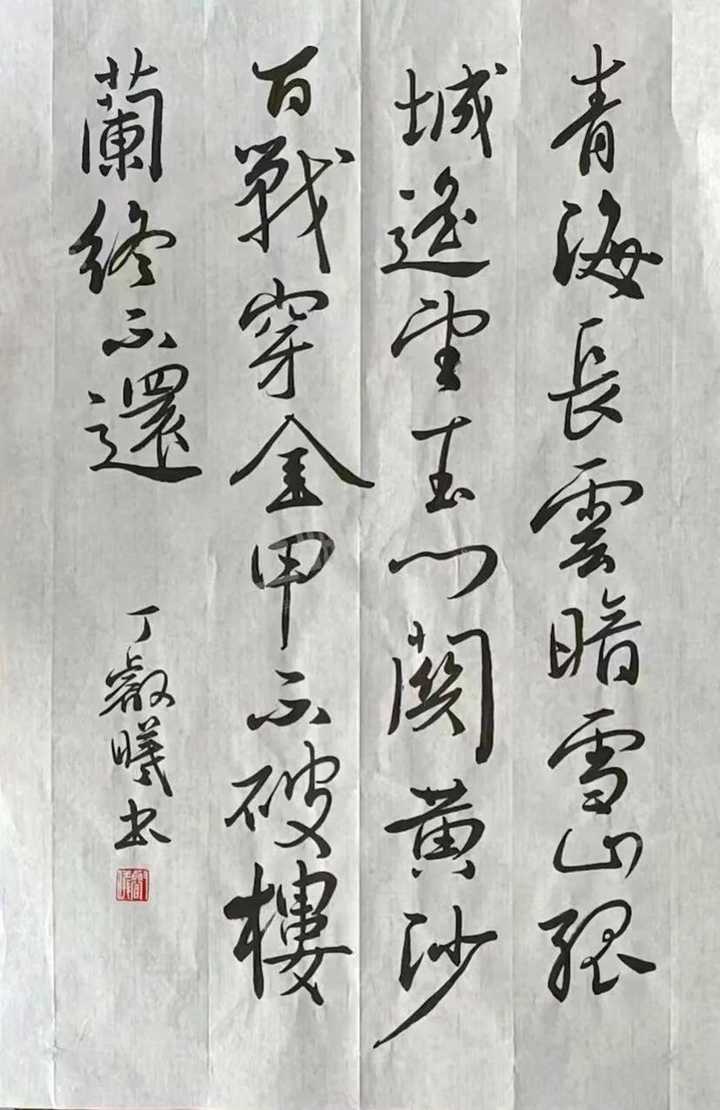 青海長雲暗雪山孤
城遙望玉門關黃沙
百戰穿金甲不破樓
蘭終不還
丁叡曦书